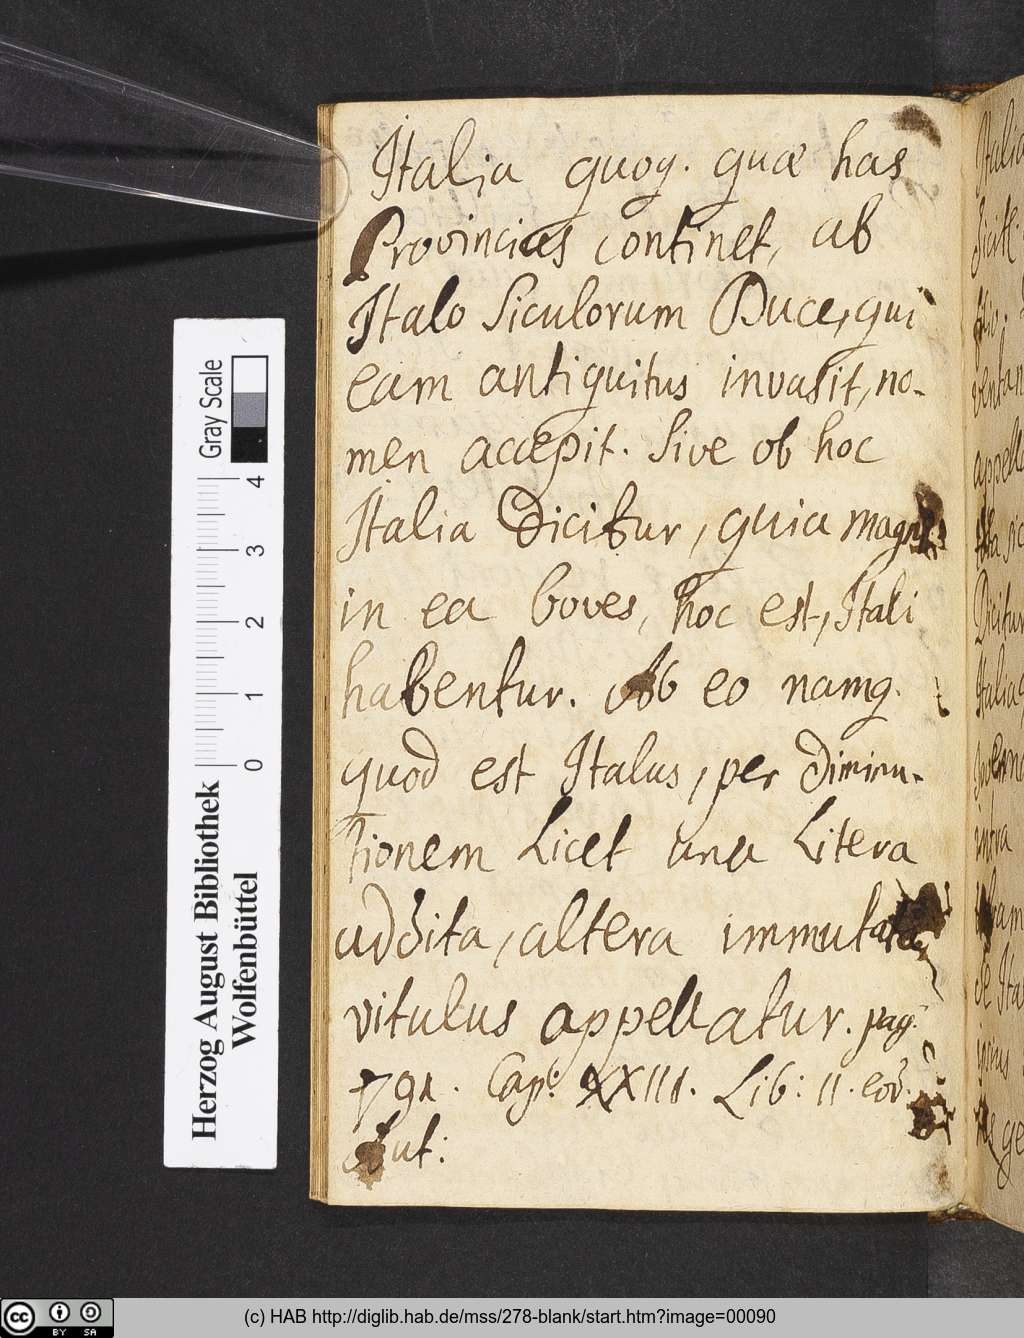 Italia quoq. quæ has
Provincias continet, ab
Italo Siculorum Duce, qui
eam antiquitus invasit, no-
men accepit. Sive ob hoc
Italia Dicitur, quia magni
in ea boves, hoc est, Itali
habentur. Ab eo namq.
quod est Italus, per Diminu-
tionem Licet una Litera
addita, altera immutata
vitulus appellatur. pag.
791. Cap: XXIII. Lib: II. eod.
Aut:
Gray Scale
0 1 2 3 4
Herzog August Bibliothek
Wolfenbüttel
Italia
appella
Dicitur
Italia
intra
BY SA
(c) HAB http://diglib.hab.de/mss/278-blank/start.htm?image=00090